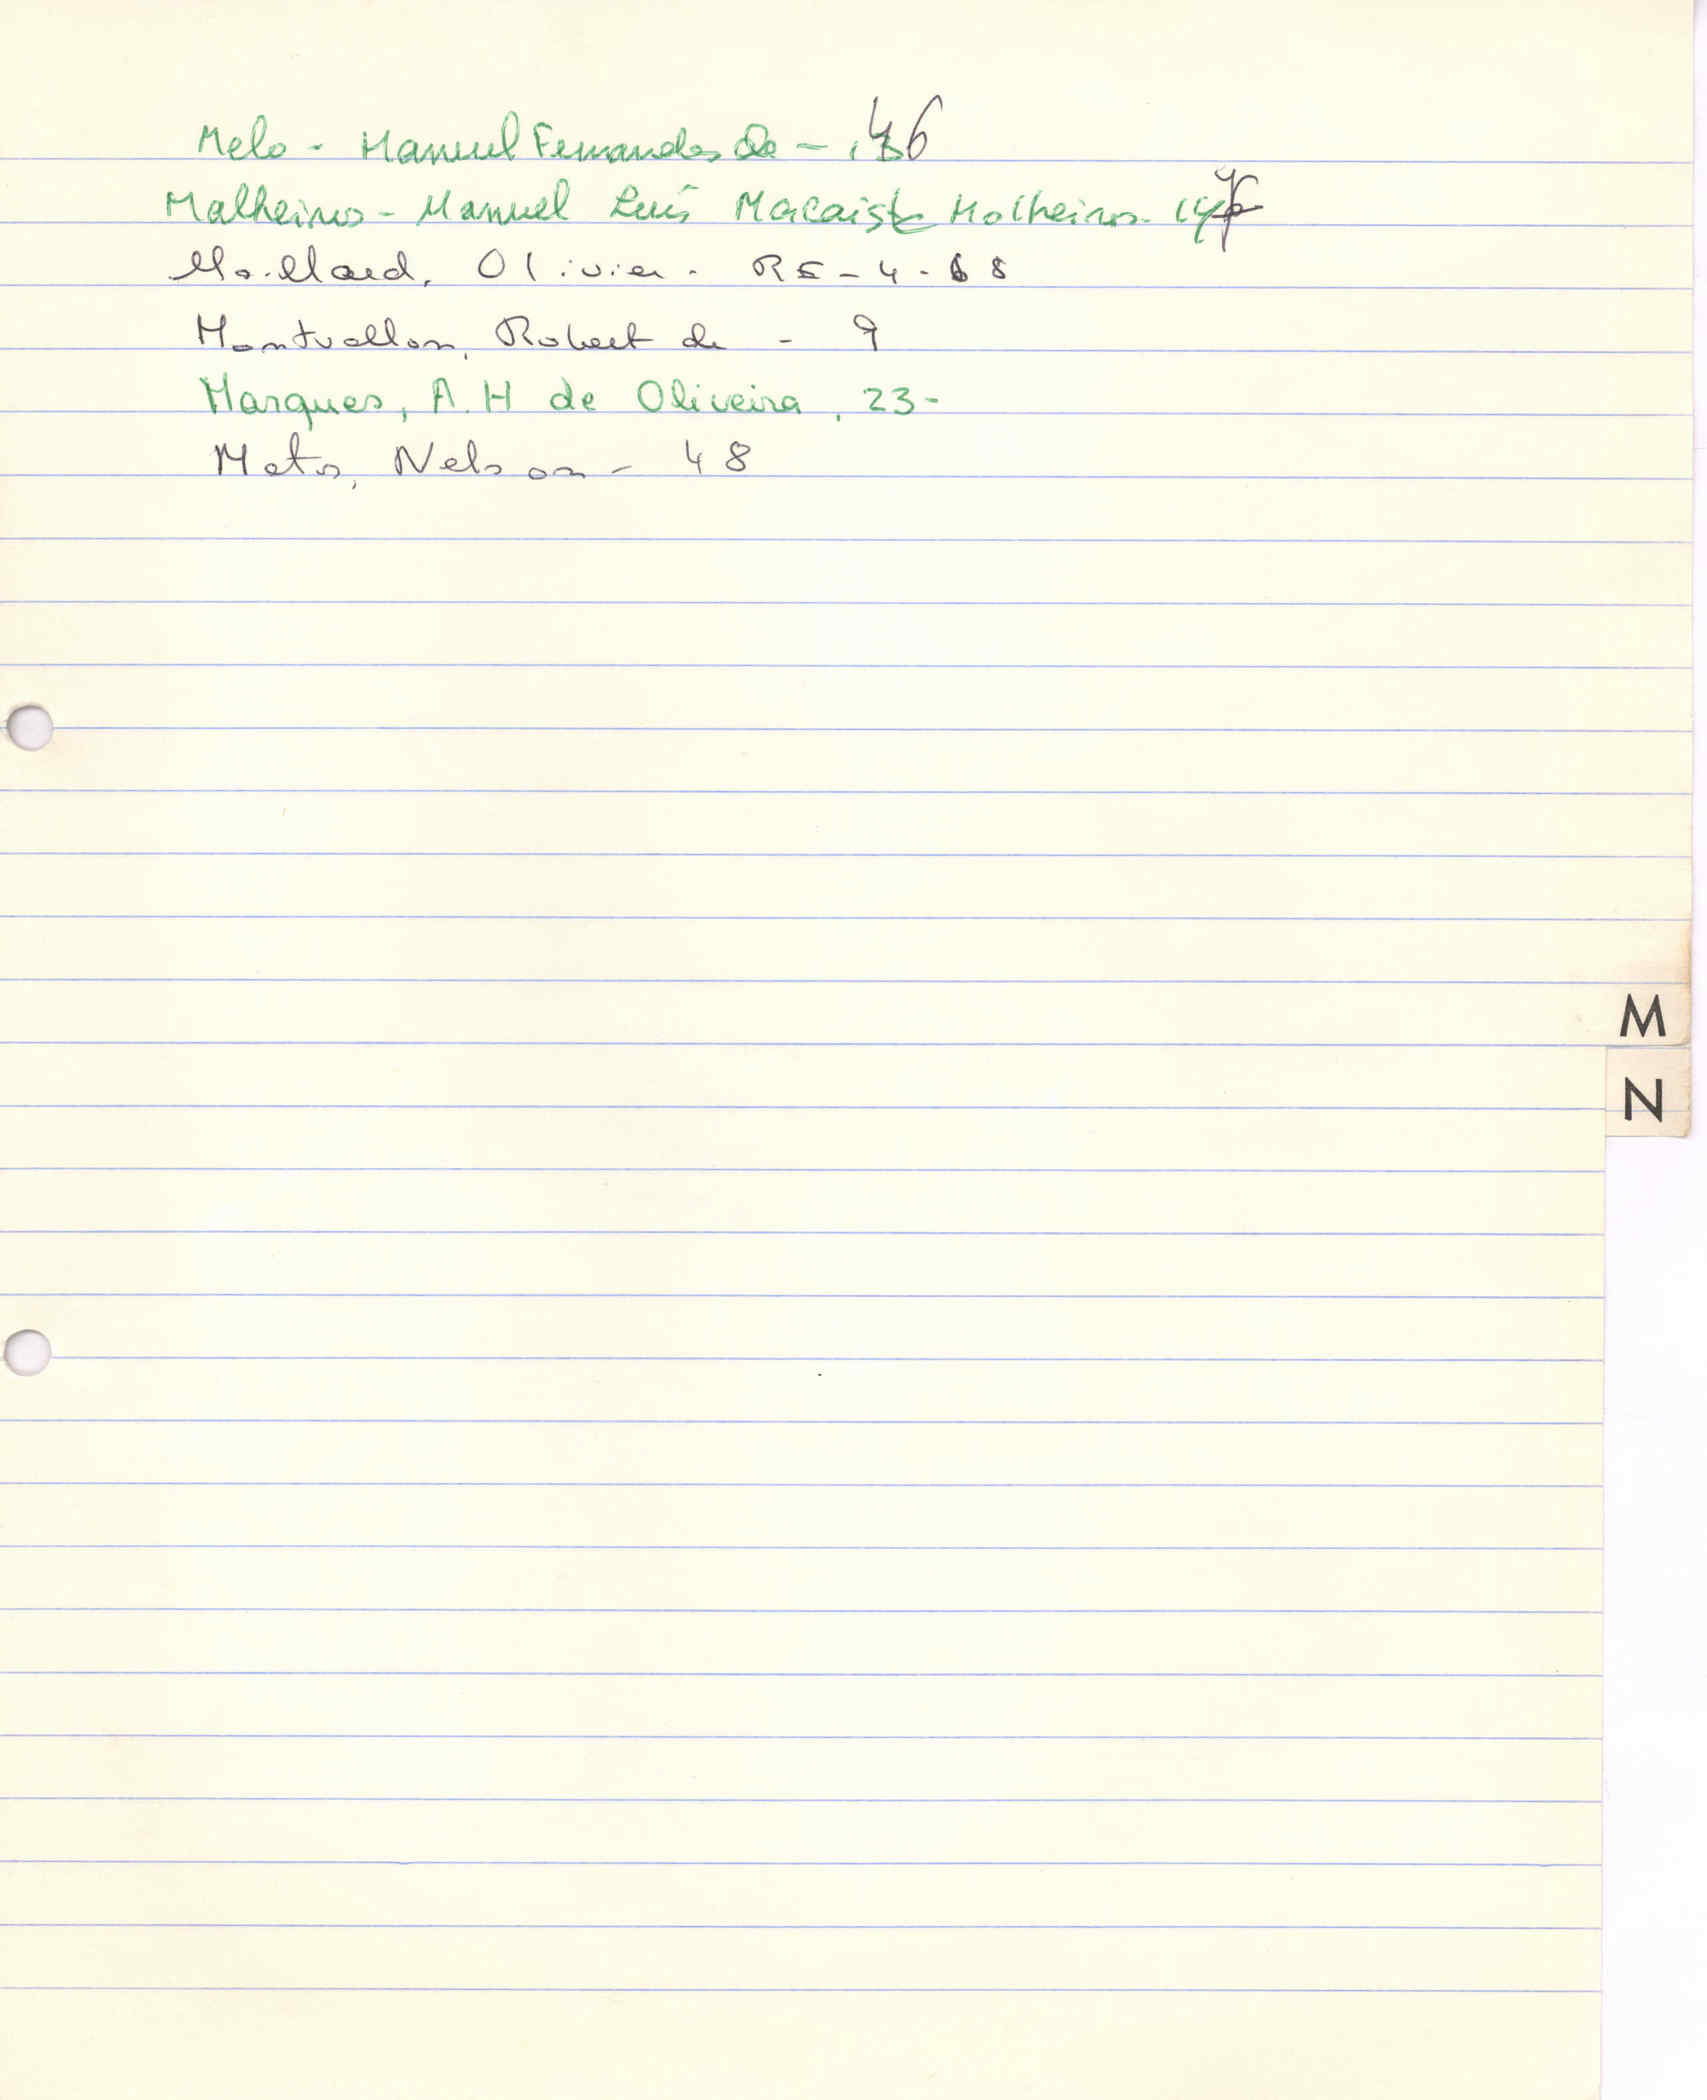 Melo - Manuel Fernandes de - 46
Malheiros - Manuel Luís Macaista Malheiros -
Maillard, Olivier - RE - 4 - 68
Montvallon, Robert de - 9
Marques, A. H de Oliveira, 23 -
Matos, Nelson - 48
M
N